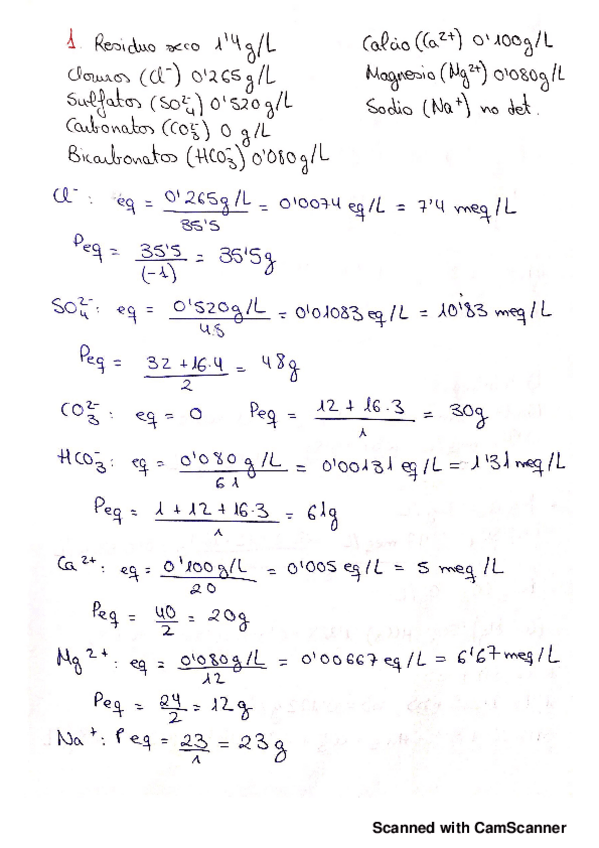 1. Residuo seco 1'4 g/L
Cloruros (Cl⁻) 0'265 g/L
Sulfatos (SO₄²⁻) 0'520 g/L
Carbonatos (CO₃²⁻) 0 g/L
Bicarbonatos (HCO₃⁻) 0'080 g/L
Calcio (Ca²⁺) 0'100 g/L
Magnesio (Mg²⁺) 0'080 g/L
Sodio (Na⁺) no det.
Cl⁻: eq = 0'265 g/L / 35'5 = 0'0074 eq/L = 7'4 meq/L
Peq = 35'5 / (-1) = 35'5 g
SO₄²⁻: eq = 0'520 g/L / 48 = 0'01083 eq/L = 10'83 meq/L
Peq = 32 + 16·4 / 2 = 48 g
CO₃²⁻: eq = 0 Peq = 12 + 16·3 / 1 = 30 g
HCO₃⁻: eq = 0'080 g/L / 61 = 0'00131 eq/L = 1'31 meq/L
Peq = 1 + 12 + 16·3 / 1 = 61 g
Ca²⁺: eq = 0'100 g/L / 20 = 0'005 eq/L = 5 meq/L
Peq = 40 / 2 = 20 g
Mg²⁺: eq = 0'080 g/L / 12 = 0'00667 eq/L = 6'67 meq/L
Peq = 24 / 2 = 12 g
Na⁺: Peq = 23 / 1 = 23 g
Scanned with CamScanner